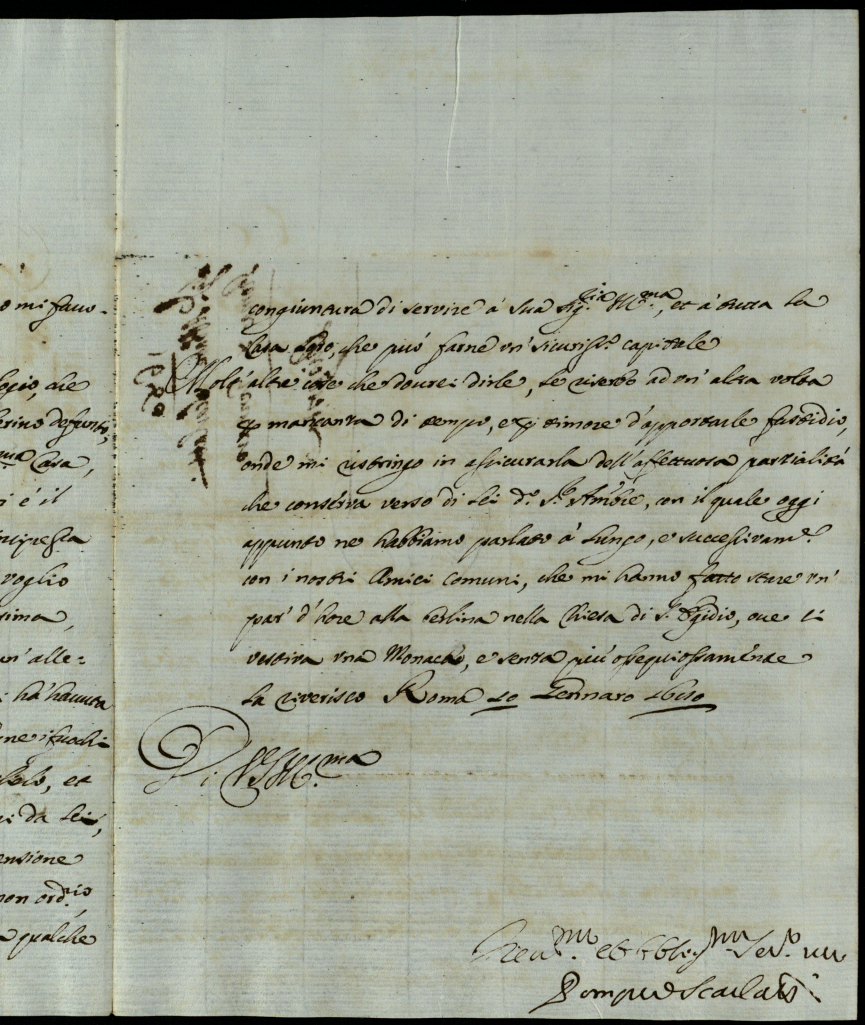 o mi fauo-
logio, che
erino defunti,
ma Casa,
i é il
ncipessa
voglio
sima,
un' alle=
i há hauuta
ne i fuochi
et
i da Lei,
ensione
non ord.rio,
a qualche
congiuntura di seruire á Sua Sig.ria Ill.ma, et á tutta la
Casa che puó farne un' sicuriss.o capitale
Molt' altre cose che dourei dirle, le riserbo ad un' altra uolta
p mancanza di tempo, e p timore d'apportarle fastidio,
onde mi ristringo in assicurarla dell'affettuosa partialitá
che conserua uerso di Lei d.o S.r Amb.re, con il quale oggi
appunto ne habbiamo parlato á lungo, e successiuam.te
con i nostri Amici comuni, che mi hanno fatto stare un'
par' d'hore alla berlina nella Chiesa di S. Egidio, oue si
uestiua una Monaca, e senza piú ossequiosamente
la riuerisco Roma 10 Gennaro 1680
Di V.S. Ill.ma
et Oblig.mo Ser.
Pompeo Scarlatti
1680